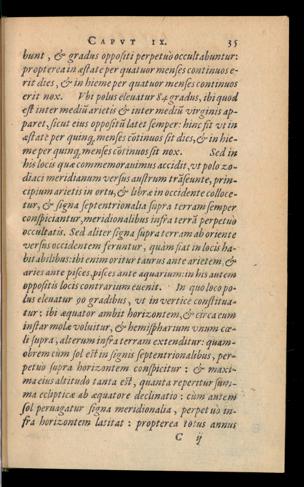 CAPVT IX. 35
bunt, & gradus oppositi perpetuò occultabuntur:
propterea in æstate per quatuor menses continuos e-
rit dies, & in hieme per quatuor menses continuos
erit nox. Vbi polus eleuatur 84 gradus, ibi quod
est inter mediũ arietis & inter mediũ virginis ap-
paret, sicut eius oppositũ latet semper: hinc fit vt in
æstate per quinq; menses cõtinuos sit dies, & in hie-
me per quinq; menses cõtinuos sit nox. Sed in
his locis quæ commemorauimus accidit, vt polo zo-
diaci meridianum versus austrum trãseunte, prin-
cipium arietis in ortu, & libræ in occidente colloce-
tur, & signa septentrionalia supra terram semper
conspiciantur, meridionalibus infra terrã perpetuò
occultatis. Sed aliter signa supra terram ab oriente
versus occidentem feruntur, quàm fiat in locis ha-
bitabilibus: ibi enim oritur taurus ante arietem, &
aries ante pisces, pisces ante aquarium: in his autem
oppositis locis contrarium euenit. In quo loco po-
lus eleuatur 90 gradibus, vt in vertice constitua-
tur: ibi æquator ambit horizontem, & circa eum
instar molæ voluitur, & hemisphærium vnum cæ-
li supra, alterum infra terram extenditur: quam-
obrem cùm sol est in signis septentrionalibus, per-
petuò supra horizontem conspicitur: & maxi-
ma eius altitudo tanta est, quanta reperitur sum-
ma eclipticæ ab æquatore declinatio: cùm autem
sol peruagatur signa meridionalia, perpetuò in-
fra horizontem latitat: propterea totus annus
C ij